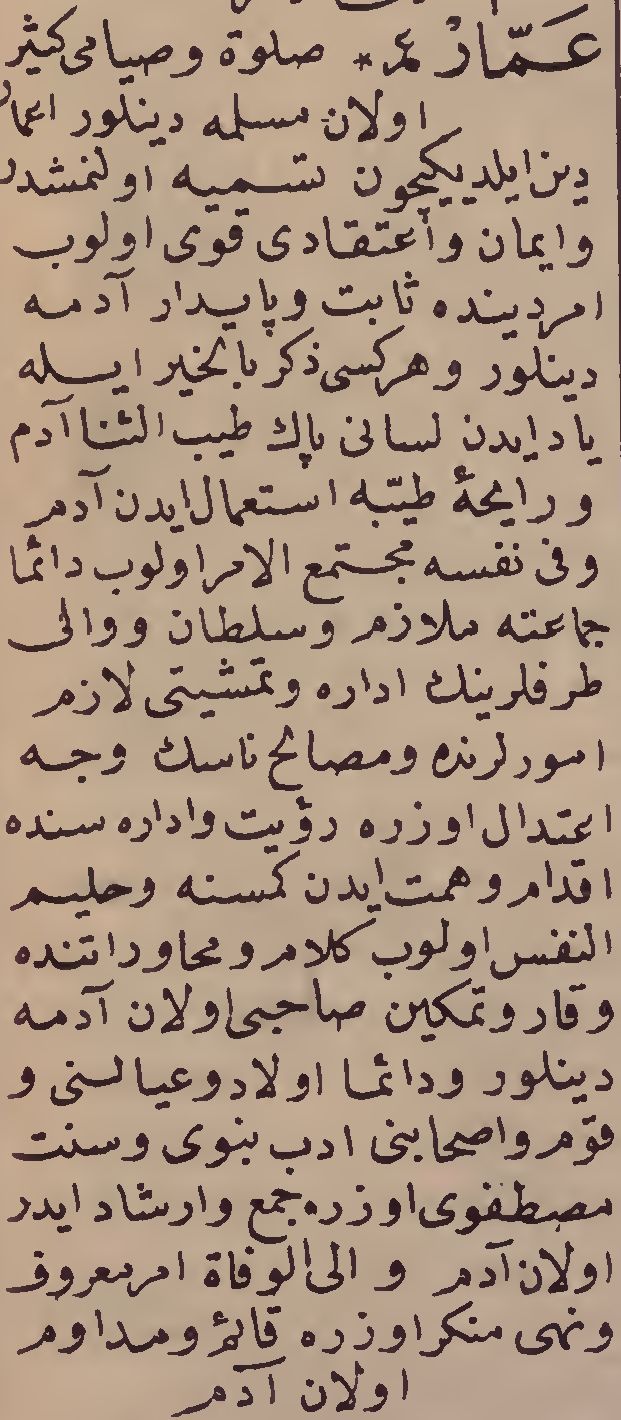 عَمَّارْ عم * صلوة وصيامى كثير
اولان مسلمه دينلور اعمار
دين ايلديكيچون تسميه اولنمشدر
وايمان وأعتقادى قوى اولوب
امردينده ثابت وپايدار آدمه
دينلور وهركسى ذكر بالخير ايسله
ياد ايدن لسانى پاك طيب الثنا آدم
ورايحهٔ طيّبه استعمال ايدن آدم
وفى نفسه مجتمع الامر اولوب دائما
جماعته ملازم وسلطان ووالى
طرفلرينك اداره وتمشيتى لازم
امورلرنده ومصالح ناسك وجه
اعتدال اوزره رؤيت واداره سنده
اقدام وهمت ايدن كمسنه وحليم
النفس اولوب كلام ومحاوراتنده
وقار وتمكين صاحبى اولان آدمه
دينلور ودائما اولاد وعيالنى و
قوم واصحابنى ادب نبوى وسنت
مصطفوى اوزره جمع وارشاد ايدر
اولان آدم والى الوفاة امرمعروف
ونهى منكر اوزره قائم ومداوم
اولان آدم